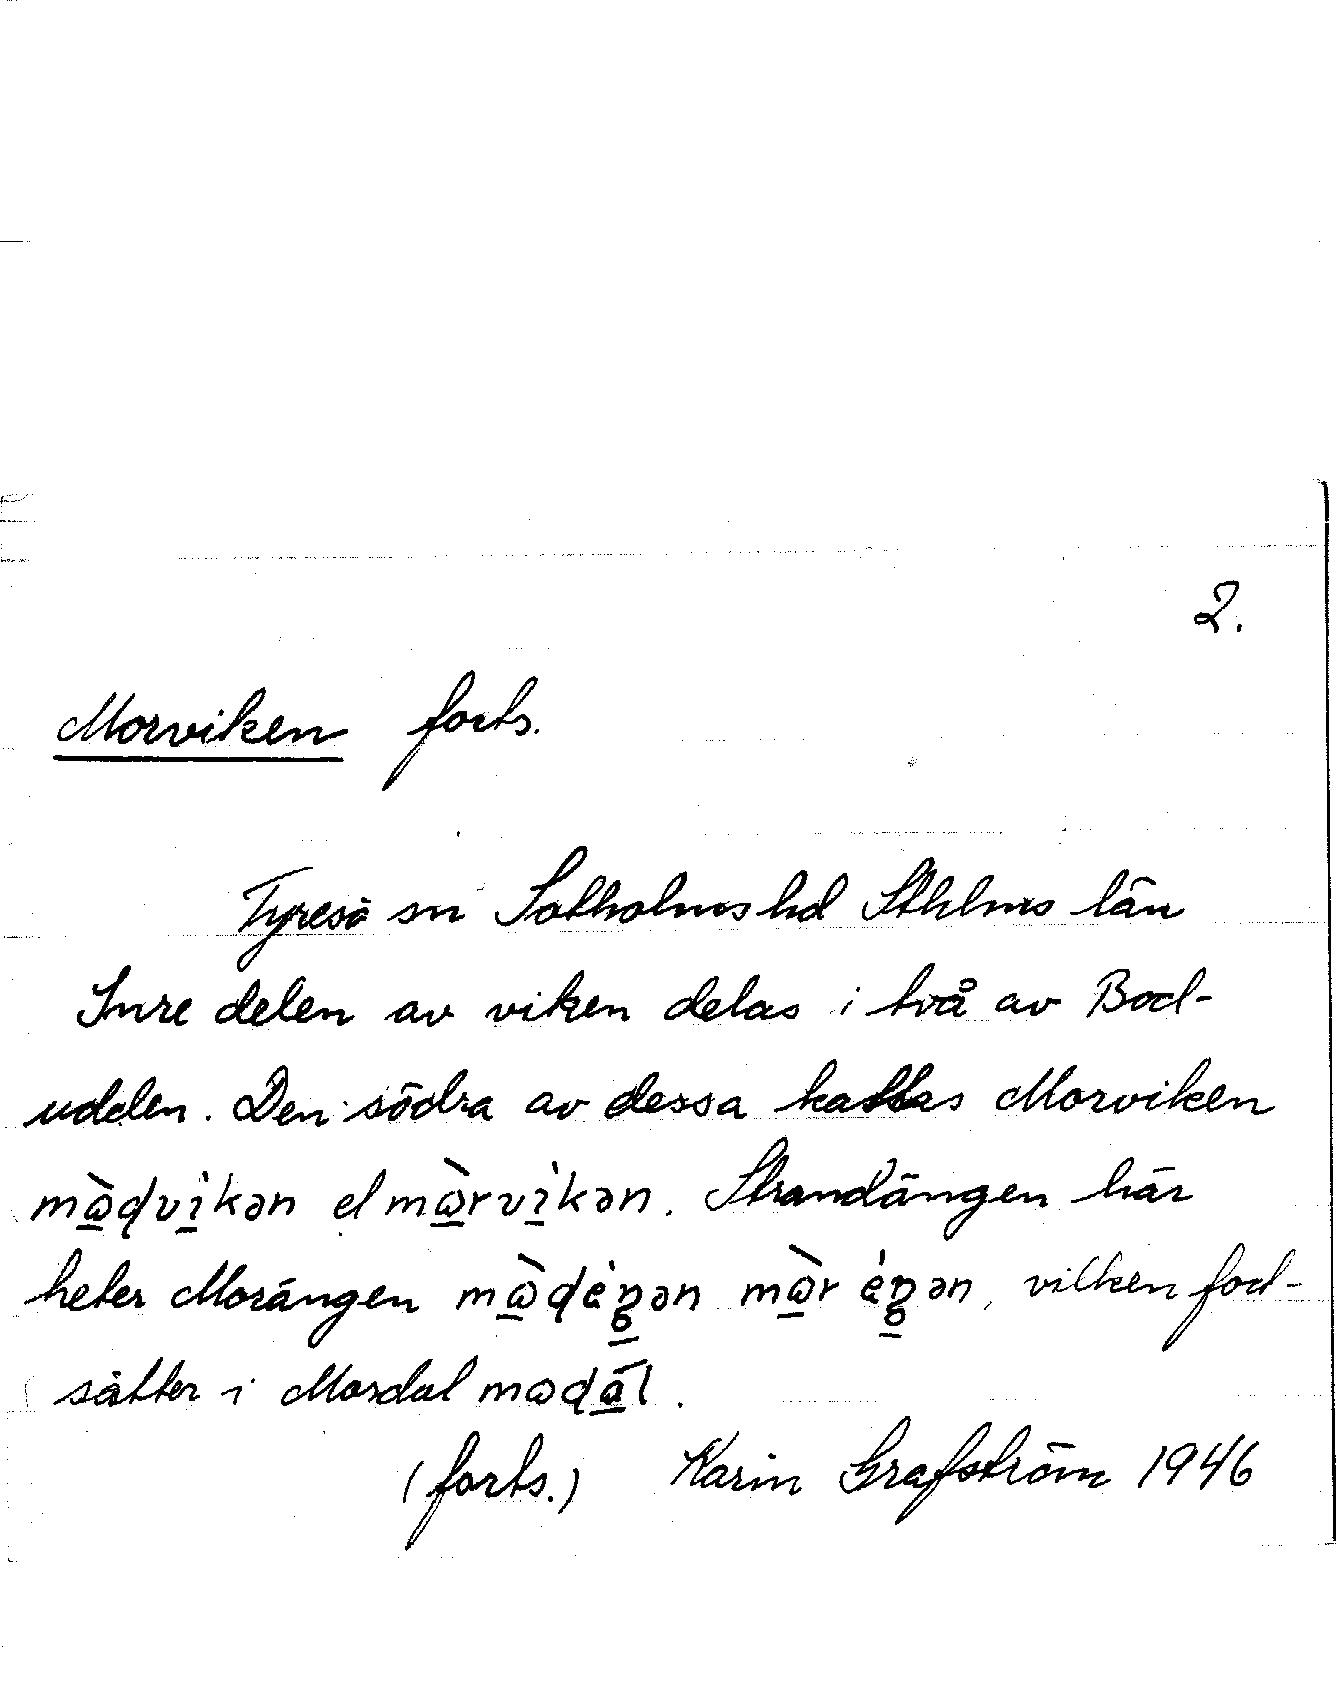 2.
Morviken forts.
Tyresö sn Sotholms hd Sthlms län
Inre delen av viken delas i två av Bod-
udden. Den södra av dessa kallas Morviken
mὼ̲ɖvì̲kən el mὼ̲rvì̲kən. Strandängen här
heter Morängen mὼ̲ɖèŋ̲ən mὼ̲rèŋ̲ən, vilken fort-
sätter i Mordal mωɖá̲l.
(forts.) Karin Grafström 1946